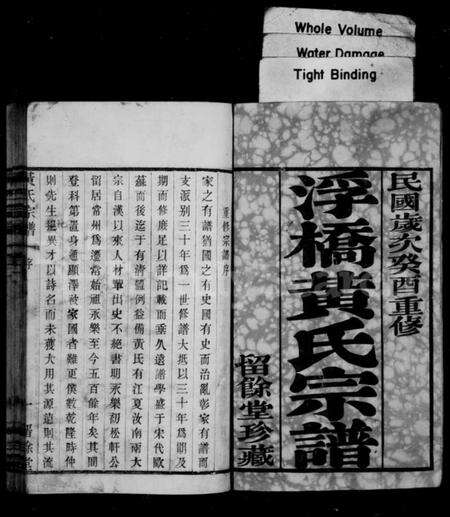 Whole Volume
Water Damage
Tight Binding
民國歲次癸酉重修
浮橋黃氏宗譜
留餘堂珍藏
重修宗譜序
家之有譜猶國之有史國有史而治亂彰家有譜而
支派別三十年為一世修譜大坻以三十年為韻及
期而修庶足以詳記載而垂久遠譜學盛于宋代歐
蘇而後迄于有清體例益備黃氏有江夏汝南兩大
宗自漢以來人材輩出史不絕書明永樂初松軒公
留居常州為遷常始祖永樂至今五百餘年矣其間
登科第置身通顯澤被家國者難更僕數乾隆時仲
則先生掘異才以詩名而未獲大用其源遠則其流
黃氏宗譜
序
一
留餘堂